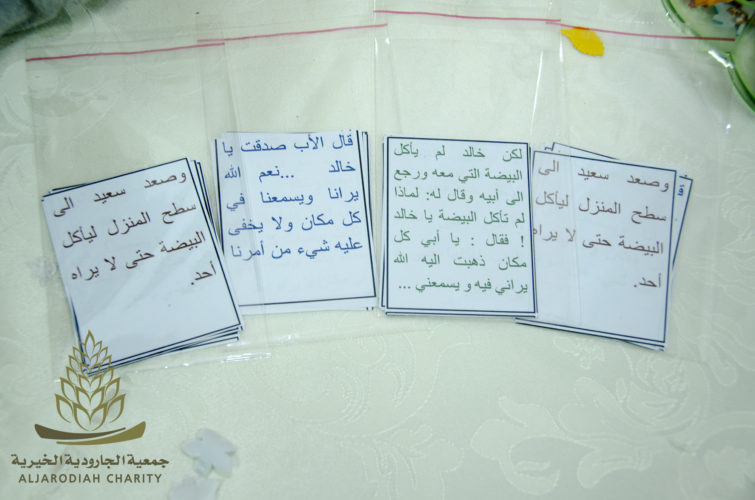 وصعد سعيد الى
سطح المنزل ليأكل
البيضة حتى لا يراه
أحد.
لكن خالد لم يأكل
البيضة التي معه ورجع
الى أبيه وقال له: لماذا
لم تأكل البيضة يا خالد
! فقال : يا أبي كل
مكان ذهبت اليه الله
يراني فيه و يسمعني ...
قال الأب صدقت يا
خالد ...نعم الله
يرانا ويسمعنا في
كل مكان ولا يخفى
عليه شيء من أمرنا
وصعد سعيد الى
سطح المنزل ليأكل
البيضة حتى لا يراه
أحد.
جمعية الجارودية الخيرية
ALJARODIAH CHARITY